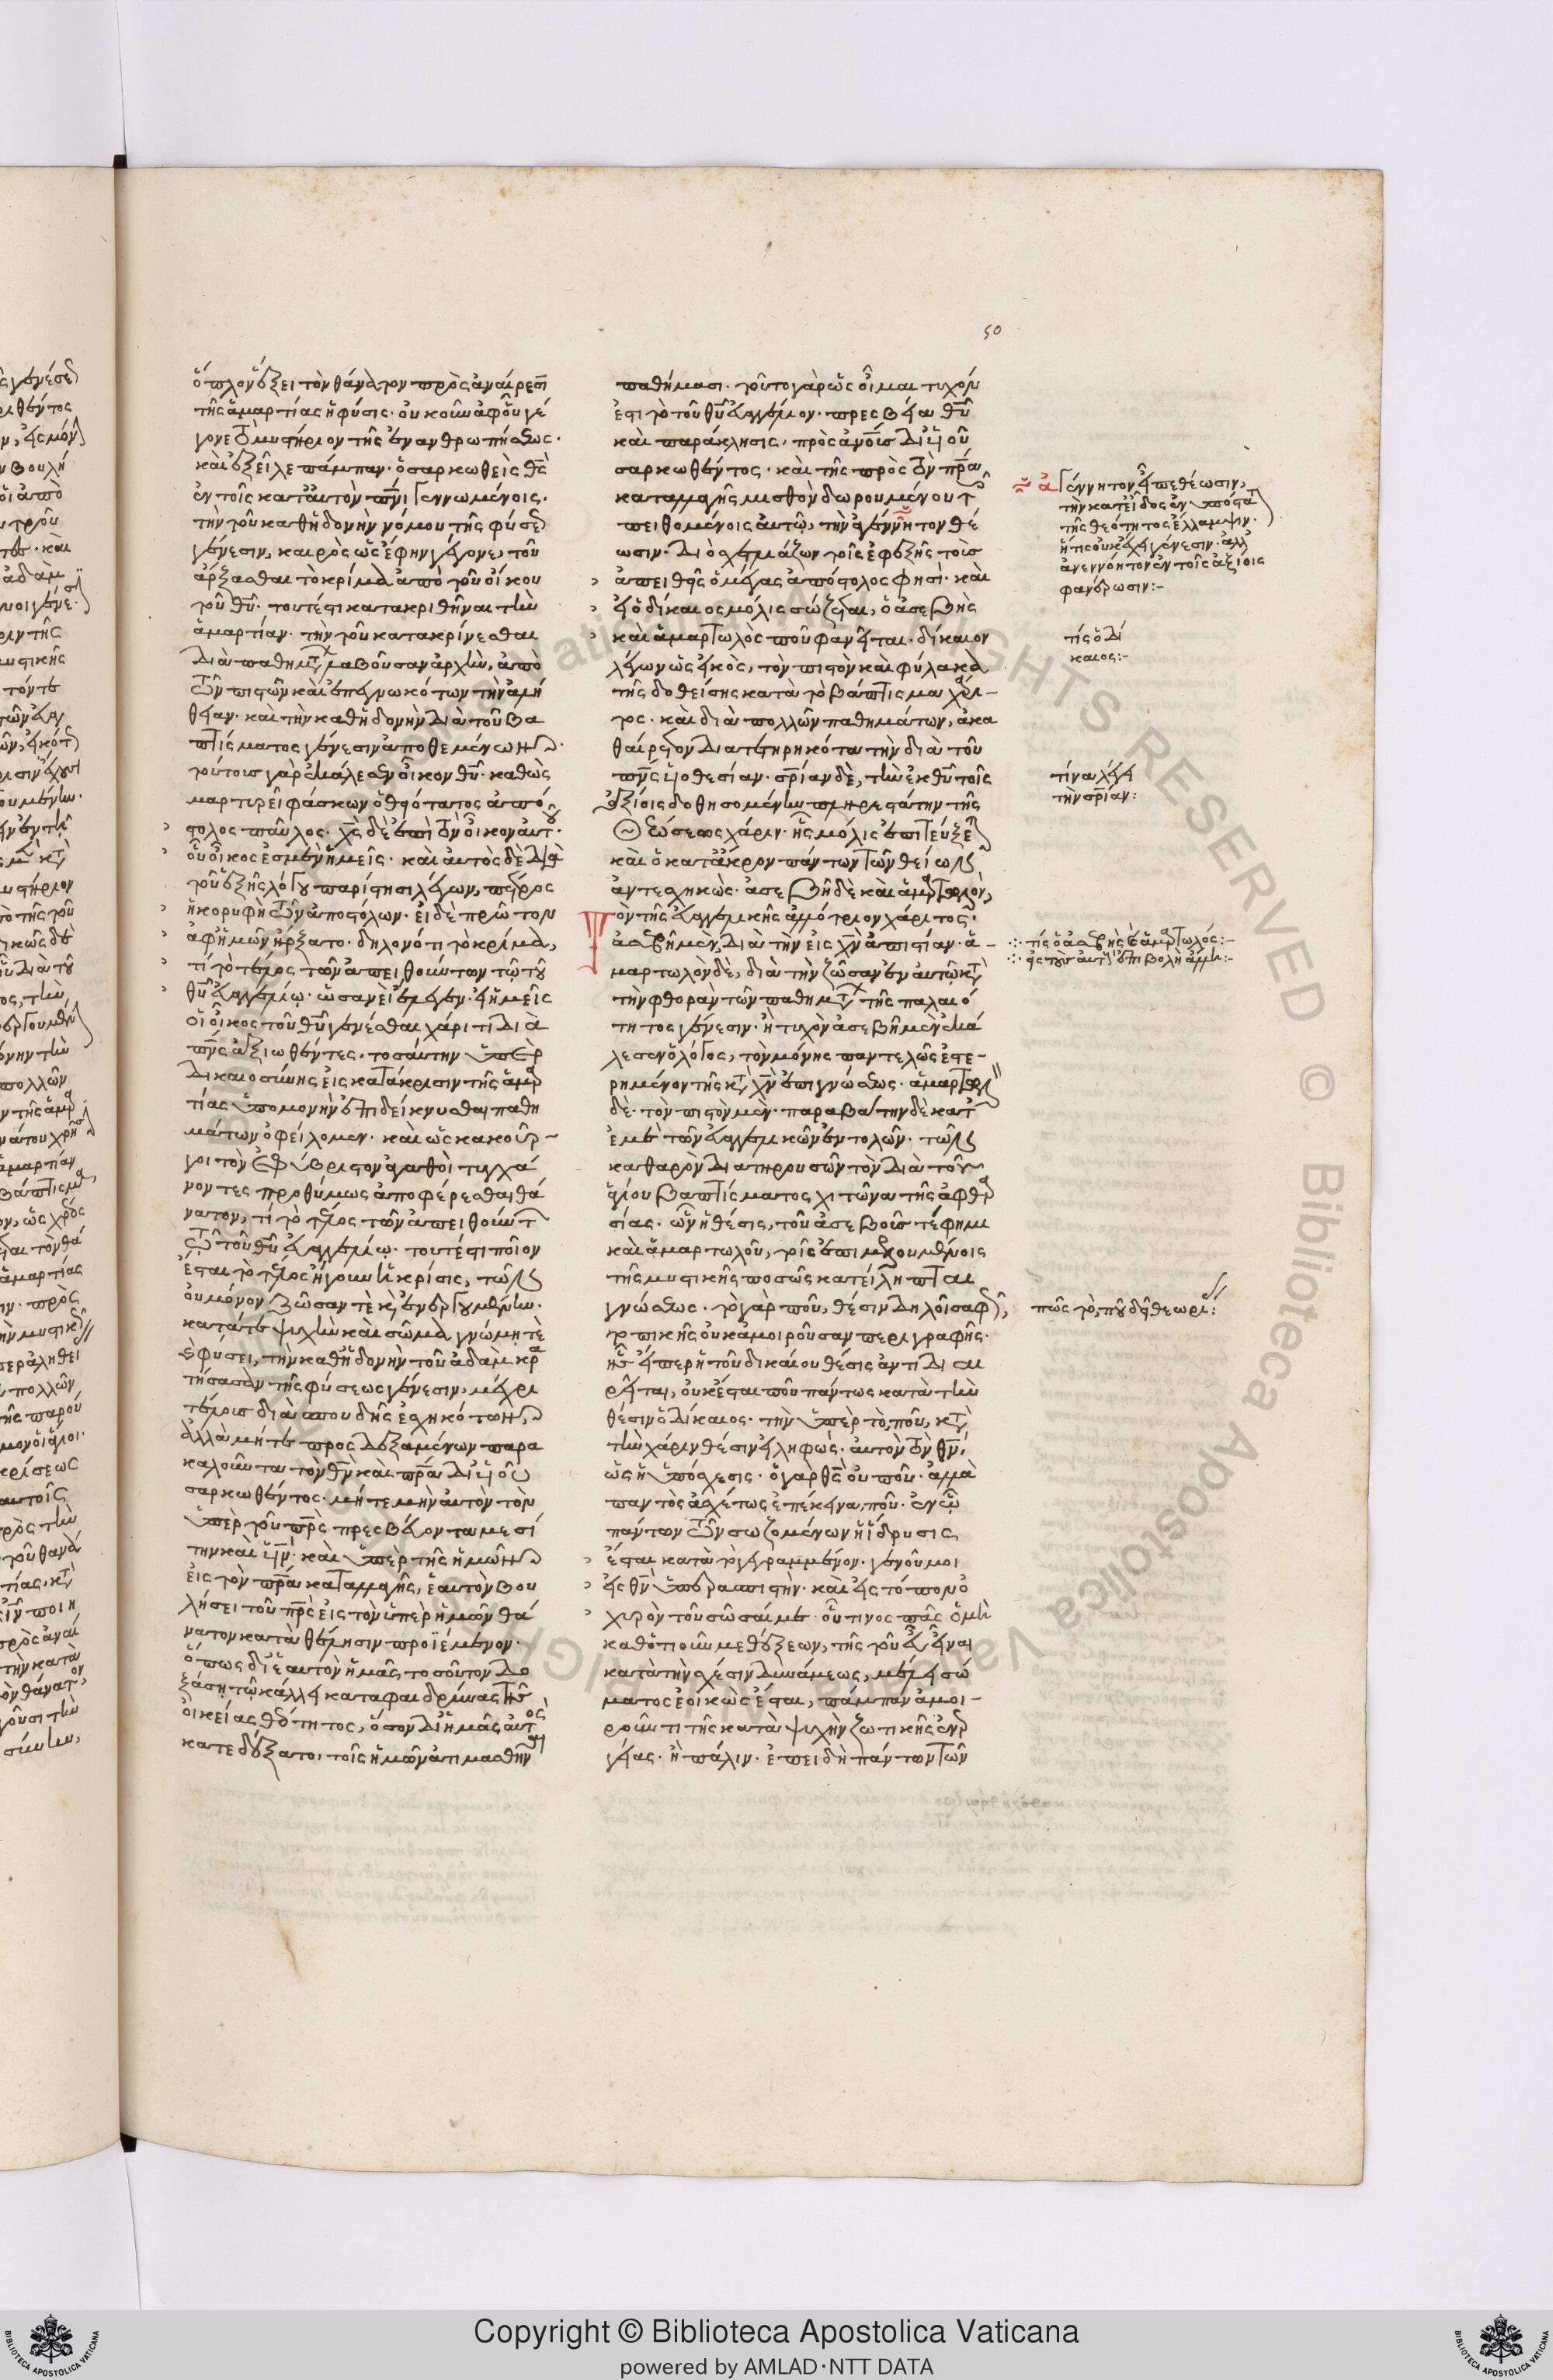 50
ὅπλον ἕξει τὸν θάνατον πρὸς ἀναίρεσιν
τῆς ἁμαρτίας ἡ φύσις· οὐκοῦν ἀφοῦ γέ
γονε τὸ μυστήριον τῆς ἐνανθρωπήσεως·
ἐν τοῖς κατ' αὐτὸν πνι γεννωμένοις·
τὴν τοῦ καθ' ἡδονὴν νόμου τῆς φύσε
γένεσιν, καιρὸς ὡς ἔφην γέγονε, τοῦ
ἄρξασθαι τὸ κρίμα ἀπὸ τοῦ οἴκου
τοῦ θυ· τουτέστι κατακριθῆναι τὴν
ἁμαρτίαν· τὴν τοῦ κατακρίνεσθαι
διὰ παθημτ λαβοῦσαν ἀρχὴν, ἀπὸ
τῶν πιστῶν καὶ ἐπεγνωκότων τὴν ἀλή
θειαν· καὶ τὴν καθ' ἡδονὴν διὰ τοῦ βα
πτίσματος γένεσιν ἀποθεμένων·
τούτους γὰρ ἐκάλεσεν οἶκον θυ· καθὼς
μαρτυρεῖ φάσκων ὁ θειότατος ἀπό
στολος παῦλος· χς δὲ ἐπὶ τὸν οἶκον αὐτου·
οὗ οἶκος ἐσμὲν ἡμεῖς· καὶ αὐτὸς δὲ διὰ
τοῦ ἑξῆς λόγου παρίστησι λέγων, πέτρος
ἡ κορυφὴ τῶν ἀποστόλων· εἰ δὲ πρῶτον
ἀφ' ἡμῶν ἤρξατο· δηλονότι τὸ κρίμα,
τί τὸ τέλος τῶν ἀπειθούντων τῷ τοῦ
θυ εὐαγγελίῳ· ὡσανεὶ ἔλεγεν· εἰ ἡμεῖς
οἱ οἶκος τοῦ θυ γενέσθαι χάριτι διὰ
πνς ἀξιωθέντες, τοσαύτην ὑπὲρ
δικαιοσύνης εἰς κατάκρισιν τῆς ἁμαρ
τίας ὑπομονὴν ἐπιδείκνυσθαι παθη
μάτων ὀφείλομεν· καὶ ὡς κακοῦρ-
γοι τὸν ἐφύβριστον ἀγαθοὶ τυγχά
νοντες προθύμως ἀποφέρεσθαι θά
νατον, τί τὸ τέλος τῶν ἀπειθούντ
τῷ τοῦ θυ εὐαγγελίῳ· τουτέστι ποῖον
ἔσται τὸ τέλος ἤγουν ἡ κρίσις, τῶν
οὐ μόνον ζῶσάν τε καὶ ἐνεργουμένην·
κατά τε ψυχὴν καὶ σῶμα γνώμῃ τὲ
καὶ φύσει, τὴν καθ' ἡδονὴν τοῦ ἀδὰμ κρα
τήσασαν τῆς φύσεως γένεσιν, μέχρι
τέλους διὰ σπουδῆς ἐσχηκότων,
ἀλλὰ μήτε προσδεξαμένων παρα
καλοῦντα τὸν θν καὶ πρα δι' υἱοῦ
σαρκωθέντος· μήτε μὴν αὐτὸν τὸν
ὑπὲρ τοῦ πρς πρεσβεύοντα μεσί
την καὶ υν· καὶ ὑπὲρ τῆς ἡμῶν
εἰς τὸν πρα καταλλαγῆς, ἑαυτὸν βου
λήσει τοῦ πρς εἰς τὸν ὑπὲρ ἡμῶν θά
νατον κατὰ θέλησιν προϊέμενον·
ὅπως δι' ἑαυτὸν ἡμᾶς τοσοῦτον δο
ξάσῃ τῷ κάλλει καταφαιδρύνας τῆς
οἰκείας θεότητος, ὅσον δι' ἡμᾶς αὐτος
κατεδέξατο, τοῖς ἡμῶν ἀτιμασθῆναι
παθήμασι· τοῦτο γὰρ ὡς οἶμαι τυχὸν
ἐστὶ τὸ τοῦ θυ εὐαγγέλιον· πρεσβεία θυ
καὶ παράκλησις, πρὸς ἀνους δι' υἱοῦ
σαρκωθέντος· καὶ τῆς πρὸς τὸν πρα
καταλλαγῆς μισθὸν δωρουμένου τοῖς
πειθομένοις αὐτῷ, τὴν ἀγέννητον θέ
ωσιν· διὸ σχετλιάζων τοῖς ἐφεξῆς τοὺς
ἀπειθεῖς ὁ μέγας ἀπόστολος φησί· καὶ
εἰ ὁ δίκαιος μόλις σώζεται, ὁ ἀσεβὴς
καὶ ἁμαρτωλὸς ποῦ φανεῖται· δίκαιον
λέγων ὡς εἰκὸς, τὸν πιστὸν καὶ φύλακα
τῆς δοθείσης κατὰ τὸ βάπτισμα χάρι-
τος· καὶ διὰ πολλῶν παθημάτων, ἀκα
θαίρετον διατετηρηκότα τὴν διὰ τοῦ
πνς υἱοθεσίαν· σριαν δὲ, τὴν ἐκ θυ τοῖς
ἀξίοις δοθησομένην πληρεστάτην τῆς
θεώσεως χάριν· ἧς μόλις ἐπιτεύξεται
καὶ ὁ κατ' ἄκρον πάντων τῶν θείων
ἀντεχηκὼς· ἀσεβῆ δὲ καὶ ἁμαρτωλὸν,
τὸν τῆς εὐαγγελικῆς ἀλλότριον χάριτος·
ἀσεβῆ μὲν, διὰ τὴν εἰς χν ἀπιστίαν· ἁ-
μαρτωλὸν δὲ, διὰ τὴν ζῶσαν ἐν αὐτῷ κτ
τὴν φθορὰν τῶν παθημτ τῆς παλαιό
τητος γένεσιν· ἢ τυχὸν ἀσεβῆ μὲν ἐκά
λεσεν ὁ λόγος, τὸν μόνης παντελῶς ἐστε-
ρημένον τῆς κτ χν ἐπιγνώσεως· ἁμαρτωλ
δὲ· τὸν πιστὸν μὲν· παραβάτην δὲ κατ'
ἐμὲ τῶν εὐαγγελικῶν ἐντολῶν· τῶν
καθαρὸν διατηρουσῶν τὸν διὰ τοῦ
ἁγίου βαπτίσματος χιτῶνα τῆς ἀφθαρ
σίας· ὧν ἡ θέσις, τοῦ ἀσεβοῦς τέ φημι
καὶ ἁμαρτωλοῦ, τοῖς ἐπιμελουμένοις
τῆς μυστικῆς ποσῶς κατείληπται
γνώσεως· τὸ γὰρ ποῦ, θέσιν δηλοῖ σαφῶς,
τοπικῆς οὐκ ἀμοιροῦσαν περιγραφῆς·
ᾗ εἴπερ ἡ τοῦ δικαίου θέσις ἀντιδιαι
ρεῖται, οὐκ ἔσται ποῦ πάντως κατὰ τὴν
θέσιν ὁ δίκαιος· τὴν ὑπὲρ τὸ, ποῦ, κτ
τὴν χάριν θέσιν εἰληφώς· αὐτὸν τὸν θν,
ὡς ἡ ὑπόσχεσις· ὁ γὰρ θς οὐ ποῦ· ἀλλὰ
παντὸς ἀσχέτως ἐπέκεινα, ποῦ· ἐν ᾧ
πάντων τῶν σωζομένων ἡ ἵδρυσις
ἔσται κατὰ τὸ γεγραμμένον· γενοῦ μοι
εἰς θν ὑπερασπιστὴν· καὶ εἰς τόπον ὀ
χυρὸν τοῦ σῶσαί με· οὗτινος πᾶς ὁ μὴ
καθότι οὖν μεθέξεων, τῆς τοῦ εὖ εἶναι
κατὰ τὴν σχέσιν δυνάμεως, μέλει σώ
ματος ἐοικὼς ἔσται, πάμπαν ἀμοι-
ροῦντι τῆς κατὰ ψυχὴν ζωτικῆς ἐνερ
γείας· ἢ πάλιν· ἐπειδὴ πάντων τῶν
ἀγέννητον εἶπε θέωσιν,
τὴν κατ' εἶδος ἐν ὑποστα
τῆς θεότητος ἔλλαμψιν·
ἥτις οὐκ ἔχει γένεσιν· ἀλλ
ἀνεννόητον ἐν τοῖς ἀξίοις
φανέρωσιν:-
τίς ὁ δί
καιος:-
τίνα λέγει
τὴν σριαν:
τίς ὁ ἀσεβὴς καὶ ἁμαρτωλός:-
πῶς τὸ, ποῦ δεῖ θεωρεῖν:
Copyright © Biblioteca Apostolica Vaticana
powered by AMLAD·NTT DATA